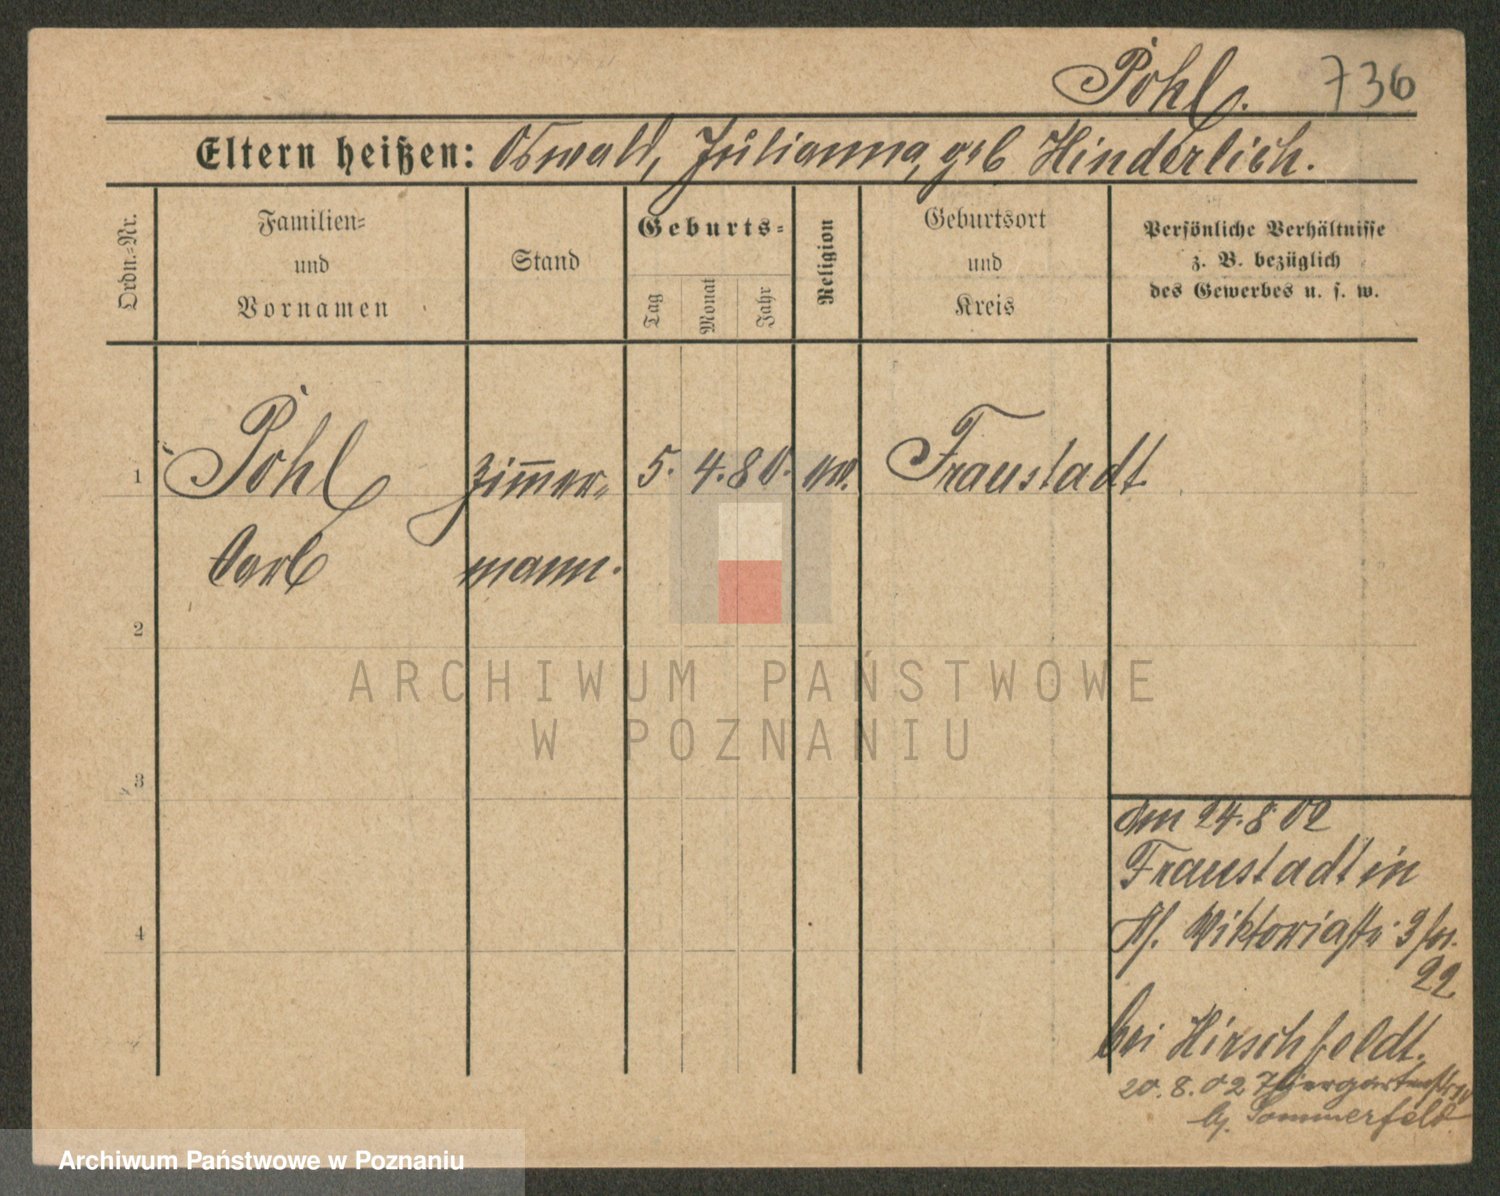 Pohl. 736
Eltern heißen: Oswald, Julianna, geb Hinderlich.
Ordn.-Nr.
Familien-
und
Vornamen
Stand
Geburts-
Tag
Monat
Jahr
Religion
Geburtsort
und
Kreis
Persönliche Verhältnisse
z. B. bezüglich
des Gewerbes u. s. w.
1 Pohl Zimmer- 5. 4. 80. ev. Fraustadt
Carl mann.
2
3
4
am 24.8.02
Fraustadt in
Viktoriastr 3
22
bei Hirschfeldt.
20.8.02 Thiergartenstr
b/ Sommerfeld
ARCHIWUM PAŃSTWOWE
W POZNANIU
Archiwum Państwowe w Poznaniu